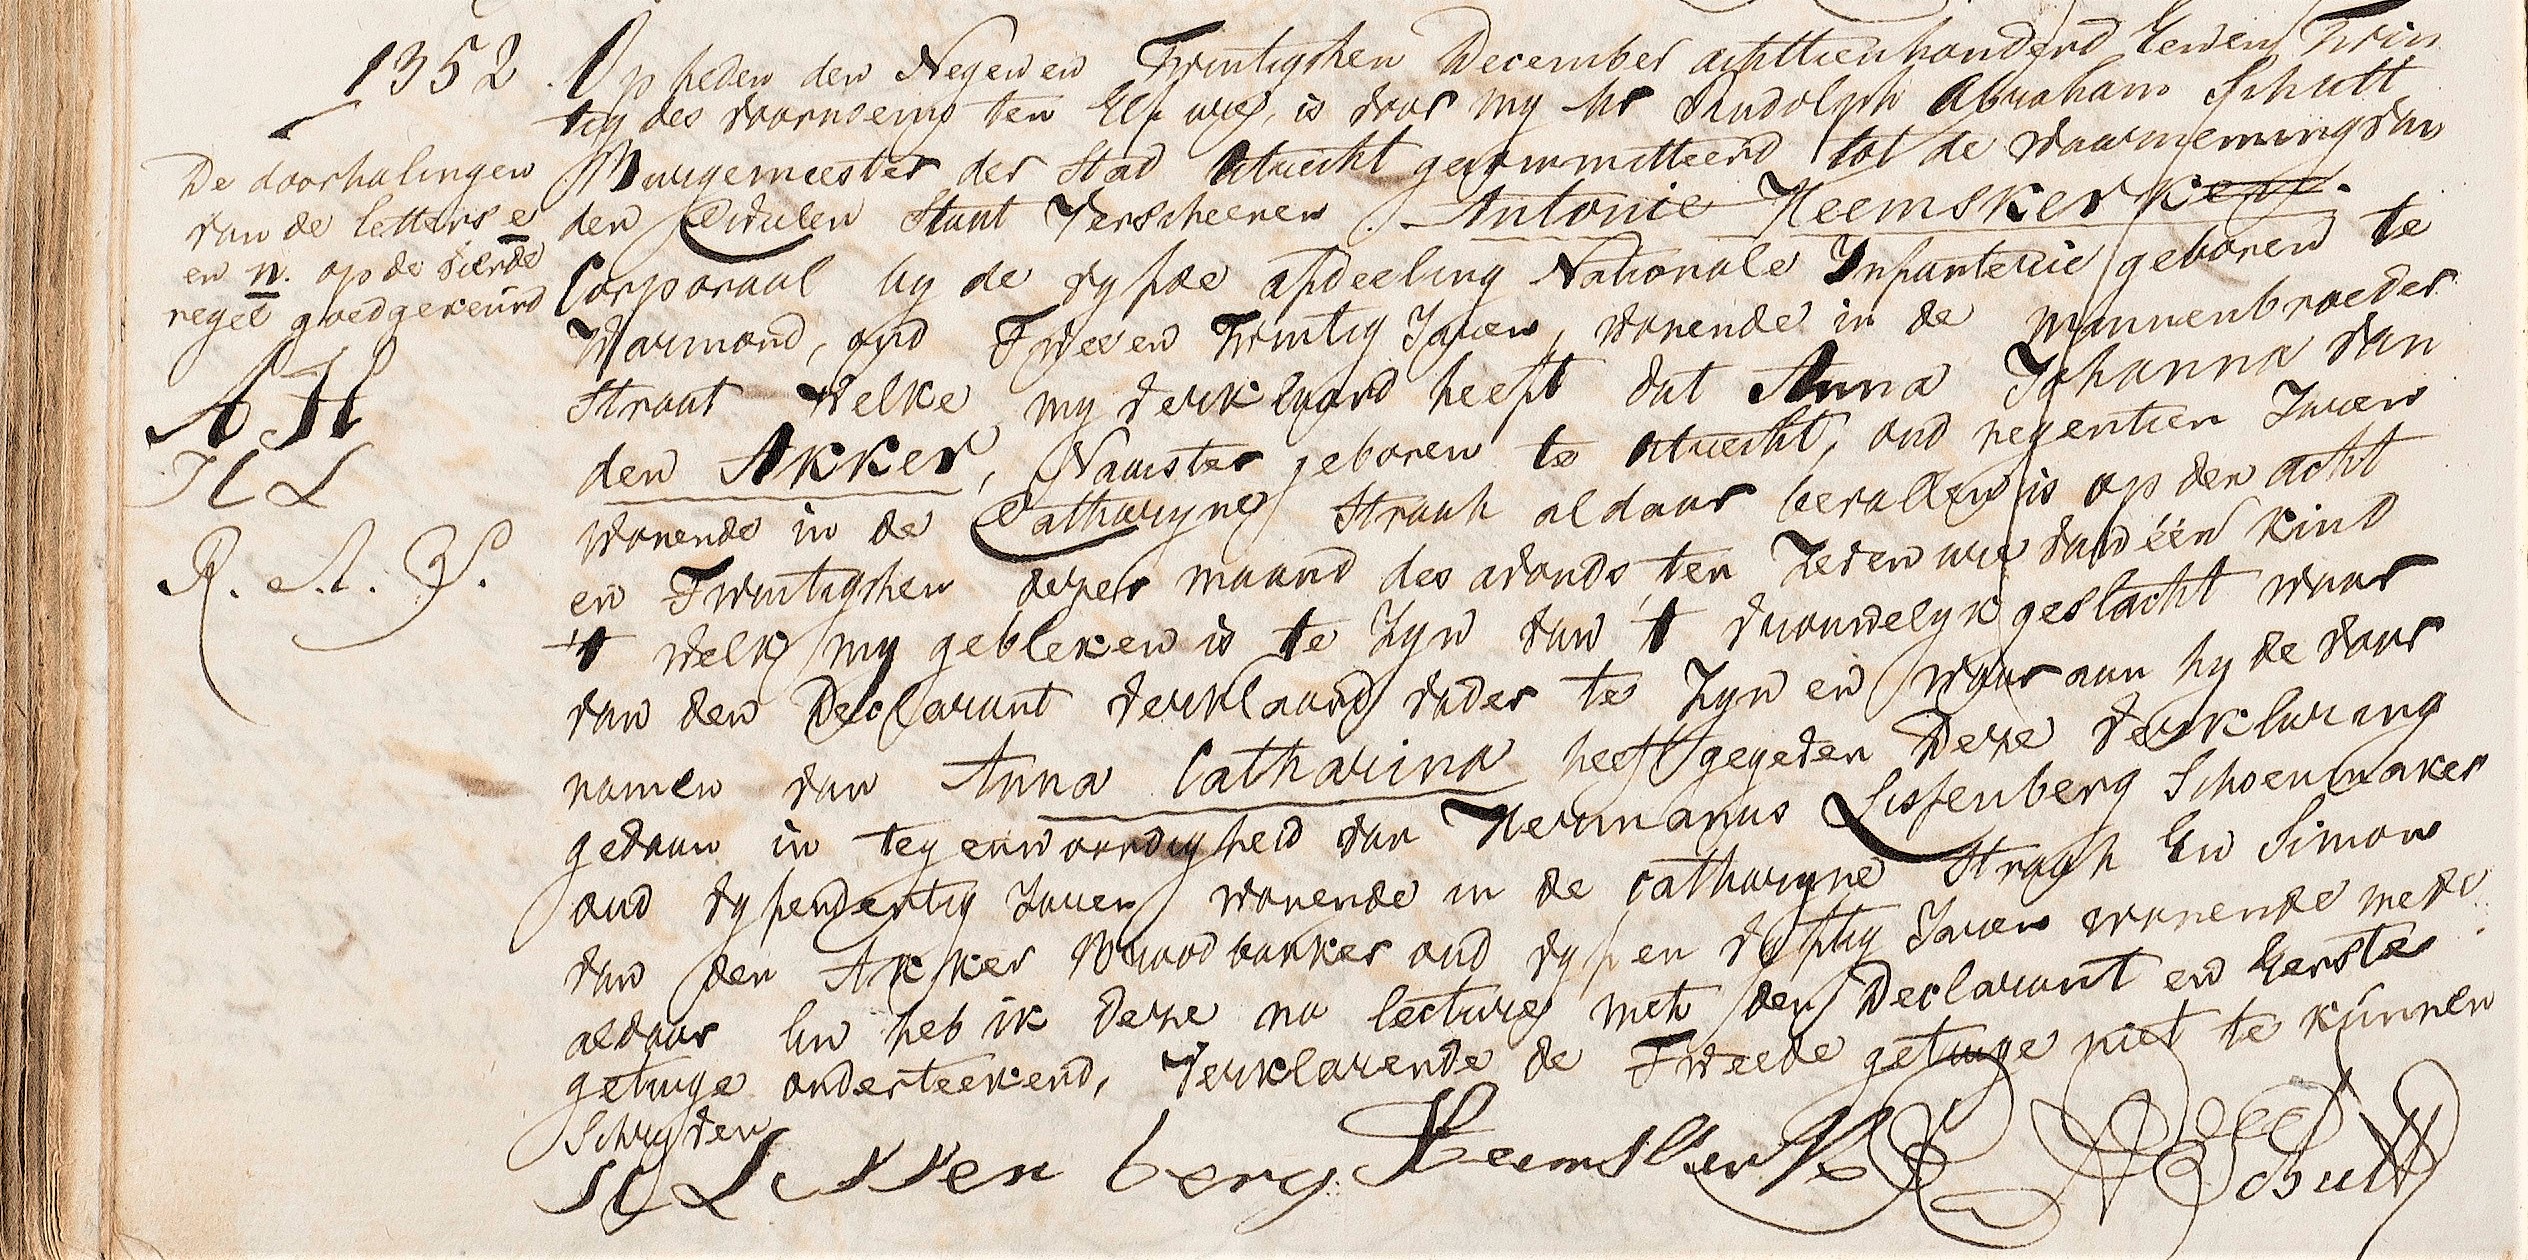 1352.
De doorhalingen
van de letters e
en n. op de vierde
regel goedgekeurd
A H
H L
R. A. S.
Op heden den Negen en Twintigsten December achttienhonderd Een en Twin
tig des voornoems ten Elf ure, is voor my Mr Rudolph Abraham Schutt
Burgemeester der Stad Utrecht gecommitteerd tot de waarneming van
den Civielen Staat Verscheenen Antonie Heemskerken.
Corporaal by de vyfde afdeeling Nationale Infanterie geboren te
Warmond, oud Twee en Twintig Jaren, wonende in de Minnenbroeder
Straat welke my verklaard heeft dat Anna Johanna van
den Akker, Naaister geboren te Utrecht, oud negentien Jaren
wonende in de Catharyne Straat aldaar bevallen is op den acht
en Twintigsten dezer maand des avonds ten Zeven ure van één kind
't welk my gebleken is te Zyn van 't vrouwelyk geslacht waar
van den Declarant verklaard vader te Zyn en waar aan hy de voor
namen van Anna Catharina heeft gegeven Deze verklaring
gedaan in tegenwoordigheid van Hermanus Lissenberg Schoenmaker
oud vyfendertig Jaren wonende in de Catharyne Straat En Simon
van den Akker Broodbakker oud vyf en vyftig Jaren wonende mede
aldaar En heb ik deze na lecture met den Declarant en Eerste
getuige onderteekend, Verklarende de Tweede getuige niet te kunnen
Schryven
H Lissenberg Heemskerk RASchutt